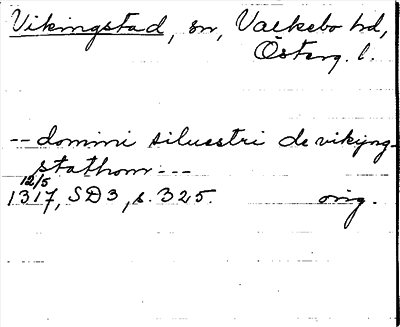 Vikingstad, sn, Valkebo hd,
Österg. l.
-- domini siluestri de vikijng-
stathom ---
12/5
1317, SD3, s. 325. orig.